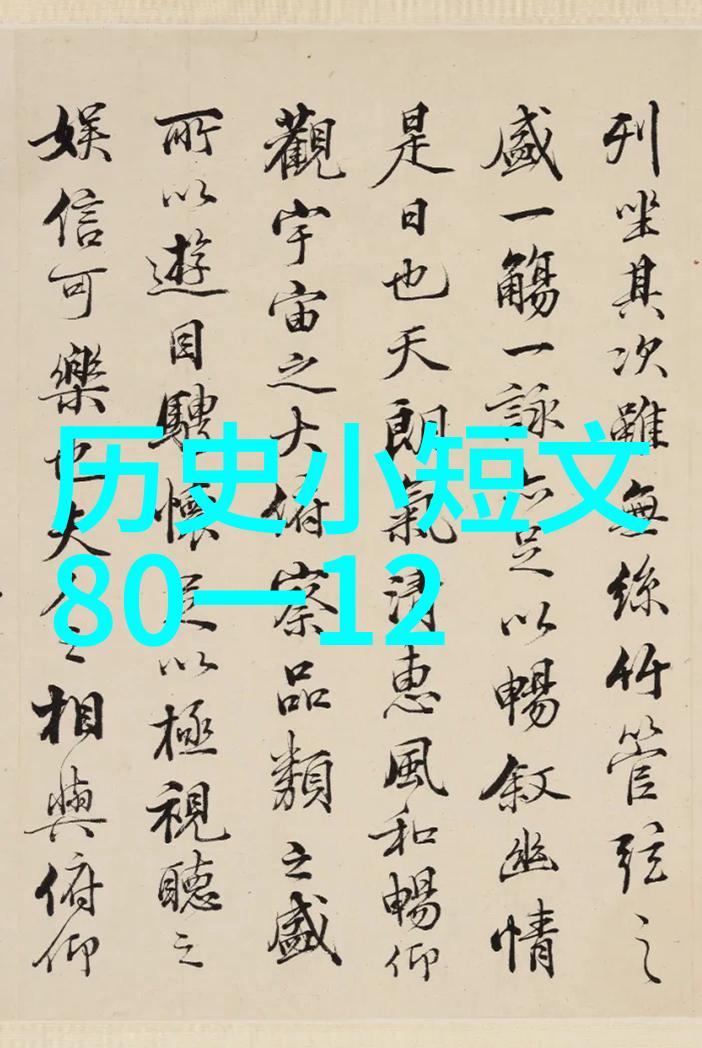 列坐其次雖無絲竹管弦之
盛一觴一詠亦足以暢叙幽情
是日也天朗氣清惠風和暢仰
觀宇宙之大俯察品類之盛
所以遊目騁懷足以極視聽之
娛信可樂也夫人之相與俯仰
历史小短文
80一12